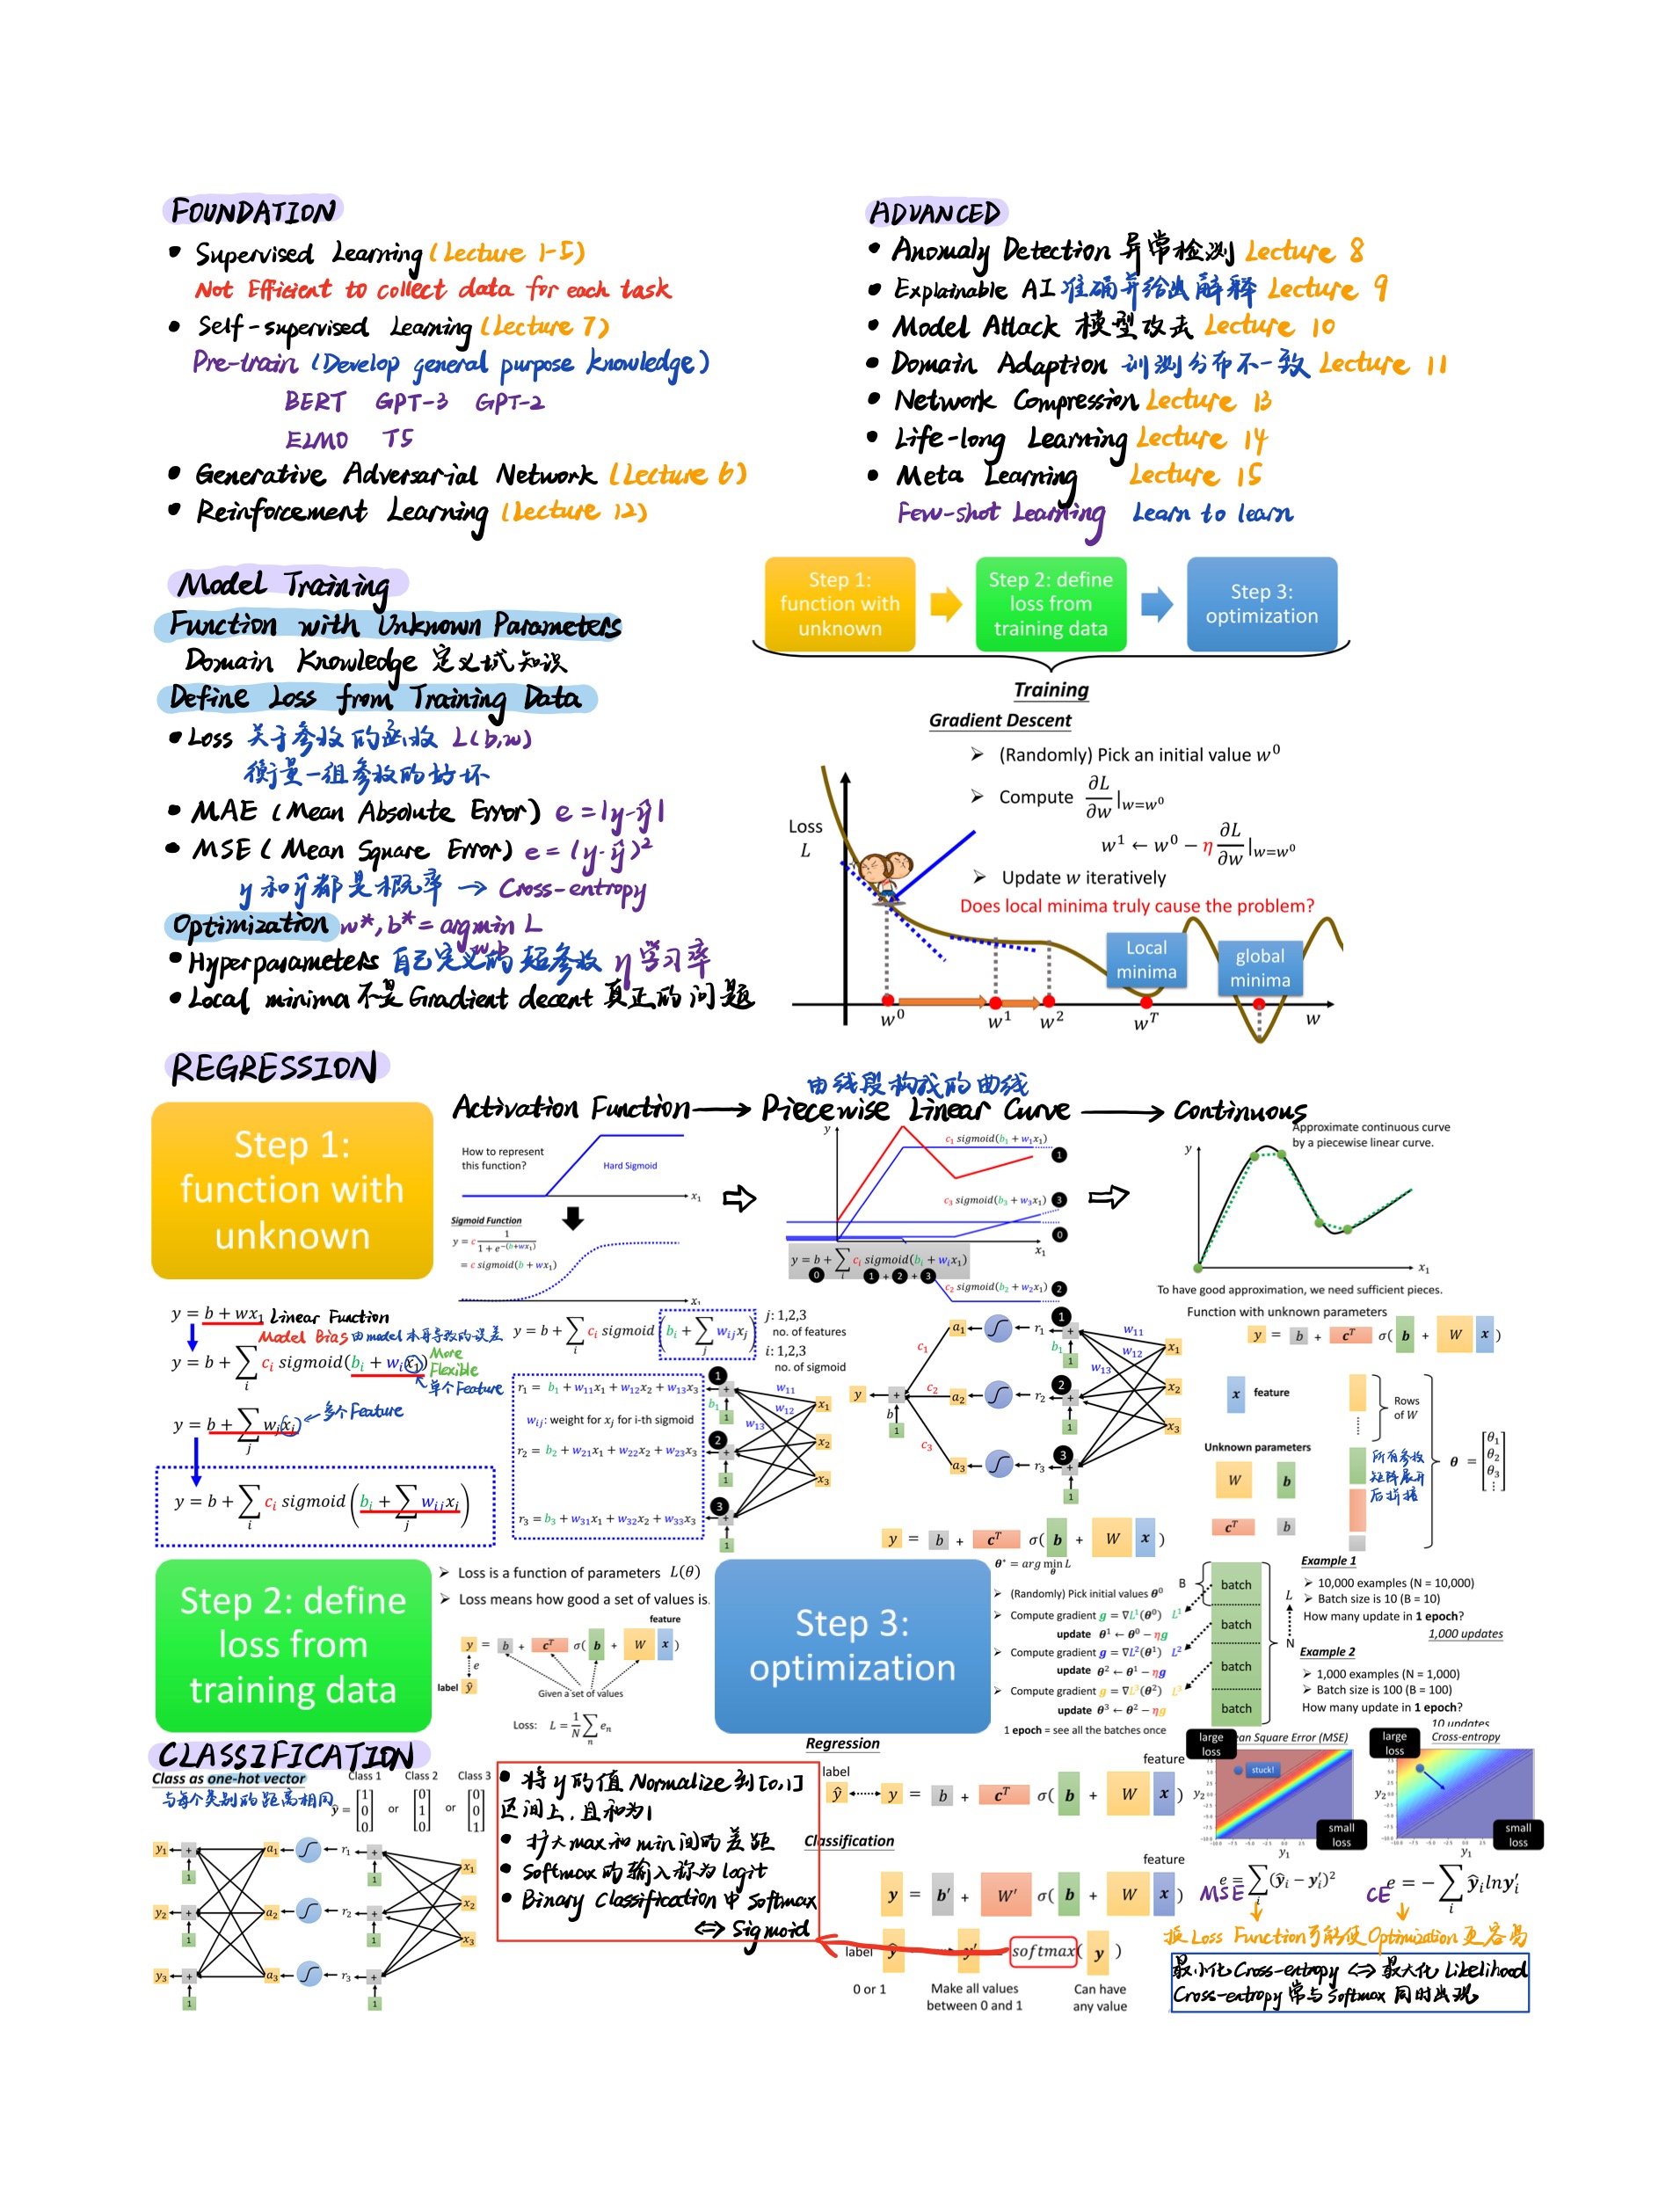 FOUNDATION
• Supervised Learning (Lecture 1-5)
Not Efficient to collect data for each task
• Self-supervised Learning (Lecture 7)
Pre-train (Develop general purpose knowledge)
BERT GPT-3 GPT-2
ELMO T5
• Generative Adversarial Network (Lecture 6)
• Reinforcement Learning (Lecture 12)
ADVANCED
• Anomaly Detection 异常检测 Lecture 8
• Explainable AI 准确并给出解释 Lecture 9
• Model Attack 模型攻击 Lecture 10
• Domain Adaption 训测分布不一致 Lecture 11
• Network Compression Lecture 13
• Life-long Learning Lecture 14
• Meta Learning Lecture 15
Few-shot Learning Learn to learn
Model Training
Function with Unknown Parameters
Domain Knowledge 定义域知识
Define Loss from Training Data
• Loss 关于参数的函数 L(b,w)
衡量一组参数的好坏
• MAE (Mean Absolute Error) e = |y-ŷ|
• MSE (Mean Square Error) e = (y-ŷ)²
y 和 ŷ 都是概率 → Cross-entropy
Optimization w*, b* = argmin L
w,b
• Hyperparameters 自己定义的超参数 η 学习率
• Local minima 不是 Gradient decent 真正的问题
Step 1:
function with
unknown
Step 2: define
loss from
training data
Step 3:
optimization
Training
Gradient Descent
➢ (Randomly) Pick an initial value w⁰
➢ Compute ∂L/∂w |w=w⁰
w¹ ← w⁰ − η ∂L/∂w |w=w⁰
➢ Update w iteratively
Does local minima truly cause the problem?
Loss
L
Local
minima
global
minima
w⁰ w¹ w² wᵀ w
REGRESSION
Step 1:
function with
unknown
Activation Function → Piecewise Linear Curve → Continuous
由线段构成的曲线
How to represent
this function?
Hard Sigmoid
x₁
Sigmoid Function
y = c 1/(1 + e^−(b+wx₁))
= c sigmoid(b + wx₁)
x₁
y
c₁ sigmoid(b₁ + w₁x₁) 1
c₃ sigmoid(b₃ + w₃x₁) 3
0
x₁
y = b + ∑ᵢ cᵢ sigmoid(bᵢ + wᵢx₁)
0 1 + 2 + 3
c₂ sigmoid(b₂ + w₂x₁) 2
Approximate continuous curve
by a piecewise linear curve.
y
x₁
To have good approximation, we need sufficient pieces.
y = b + wx₁ Linear Function
Model Bias 由model本身导致的误差
y = b + ∑ᵢ cᵢ sigmoid(bᵢ + wᵢx₁) More
Flexible
单个Feature
y = b + ∑ⱼ wⱼxⱼ 多个Feature
y = b + ∑ᵢ cᵢ sigmoid(bᵢ + ∑ⱼ wᵢⱼxⱼ)
y = b + ∑ᵢ cᵢ sigmoid(bᵢ + ∑ⱼ wᵢⱼxⱼ)
j: 1,2,3
no. of features
i: 1,2,3
no. of sigmoid
r₁ = b₁ + w₁₁x₁ + w₁₂x₂ + w₁₃x₃
wᵢⱼ: weight for xⱼ for i-th sigmoid
r₂ = b₂ + w₂₁x₁ + w₂₂x₂ + w₂₃x₃
r₃ = b₃ + w₃₁x₁ + w₃₂x₂ + w₃₃x₃
1 + b₁ 1 w₁₁ w₁₂ w₁₃ x₁
2 + 1 x₂
3 + 1 x₃
y + b 1
c₁ a₁ r₁ 1 + b₁ 1 w₁₁ w₁₂ w₁₃ x₁
c₂ a₂ r₂ 2 + 1 x₂
c₃ a₃ r₃ 3 + 1 x₃
y = b + cᵀ σ( b + W x )
Function with unknown parameters
y = b + cᵀ σ( b + W x )
x feature
Unknown parameters
W b
cᵀ b
Rows
of W
所有参数
矩阵展开
后拼接
θ = [θ₁ θ₂ θ₃ ⋮]
Step 2: define
loss from
training data
➢ Loss is a function of parameters L(θ)
➢ Loss means how good a set of values is.
feature
y = b + cᵀ σ( b + W x )
e
label ŷ
Given a set of values
Loss: L = 1/N ∑ₙ eₙ
Step 3:
optimization
θ* = arg min L
θ
➢ (Randomly) Pick initial values θ⁰
➢ Compute gradient g = ∇L¹(θ⁰) L¹
update θ¹ ← θ⁰ − ηg
➢ Compute gradient g = ∇L²(θ¹) L²
update θ² ← θ¹ − ηg
➢ Compute gradient g = ∇L³(θ²) L³
update θ³ ← θ² − ηg
1 epoch = see all the batches once
B
batch
batch
batch
batch
L
N
Example 1
➢ 10,000 examples (N = 10,000)
➢ Batch size is 10 (B = 10)
How many update in 1 epoch?
1,000 updates
Example 2
➢ 1,000 examples (N = 1,000)
➢ Batch size is 100 (B = 100)
How many update in 1 epoch?
10 updates
CLASSIFICATION
Class as one-hot vector
与每个类别的距离相同
Class 1 Class 2 Class 3
ŷ = [1 0 0] or [0 1 0] or [0 0 1]
y₁ + 1 a₁ r₁ + 1 x₁
y₂ + 1 a₂ r₂ + 1 x₂
y₃ + 1 a₃ r₃ + 1 x₃
• 将y的值Normalize到[0,1]
区间上,且和为1
• 扩大max和min间的差距
• Softmax的输入称为logit
• Binary Classification中Softmax
⇔ Sigmoid
Regression
label feature
ŷ ↔ y = b + cᵀ σ( b + W x )
Classification
feature
y = b′ + W′ σ( b + W x )
label ŷ y′ softmax( y )
0 or 1
Make all values
between 0 and 1
Can have
any value
large
loss
ean Square Error (MSE)
stuck!
small
loss
y₂
y₁
large
loss
Cross-entropy
small
loss
y₂
y₁
MSE e = ∑ᵢ (ŷᵢ − y′ᵢ)²
CE e = − ∑ᵢ ŷᵢ lny′ᵢ
换Loss Function可能使Optimization更容易
最小化Cross-entropy ⇔ 最大化Likelihood
Cross-entropy常与Softmax同时出现